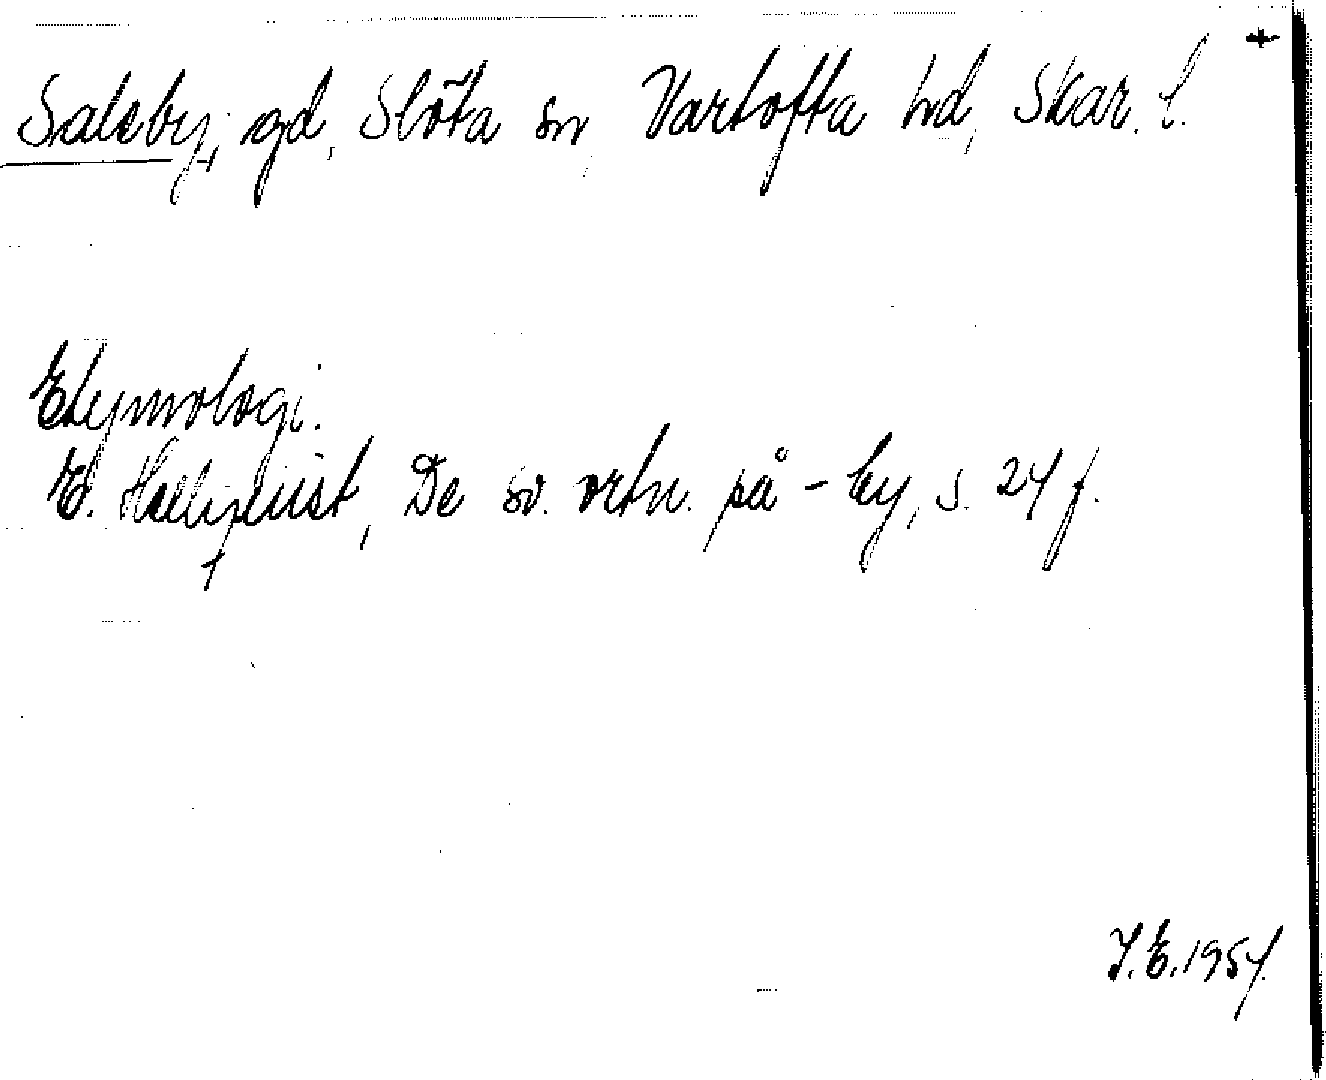 Saleby, gd, Slöta sn, Vartofta hd, Skar. l.
Etymologi.
E. Hellquist, De sv. ortn. på -by, s. 24 f.
I.E. 1954.